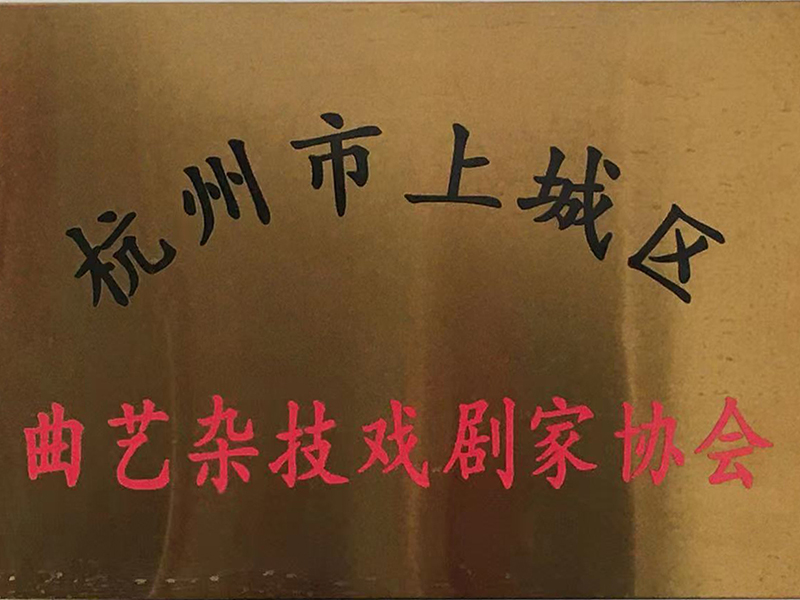 杭州市上城区
曲艺杂技戏剧家协会